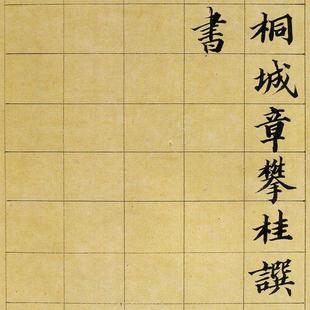 桐城章攀桂譔
書